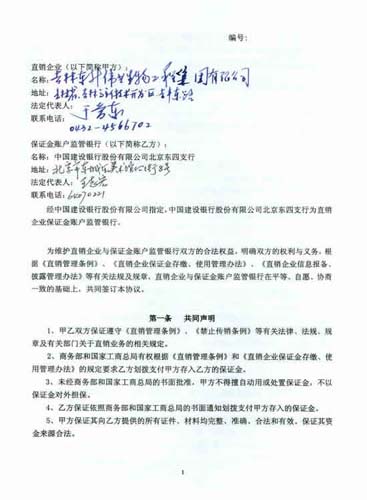 编号:
直销企业（以下简称甲方）
名称：吉林东升伟业生物工程集团有限公司
地址：吉林省吉林高新技术开发区吉丰东路
法定代表人：
联系电话：0432-4566702
保证金账户监管银行（以下简称乙方）：
名称：中国建设银行股份有限公司北京东四支行
地址：北京市东城区美术馆后街8号
法定代表人
联系电话：64070221
经中国建设银行股份有限公司指定，中国建设银行股份有限公司北京东四支行为直销
企业保证金账户监管银行。
为维护直销企业与保证金账户监管银行双方的合法权益，明确双方的权利与义务，根
据《直销管理条例》、《直销企业保证金存缴、使用管理办法》、《直销企业信息报备、
披露管理办法》等有关法规及规章，直销企业与保证金账户监管银行在平等、自愿、协商
一致的基础上，共同签订本协议。
第一条 共同声明
1、甲乙双方保证遵守《直销管理条例》、《禁止传销条例》等有关法律、法规、规
章及有关部门关于直销业务的相关规定。
2、商务部和国家工商总局有权根据《直销管理条例》和《直销企业保证金存缴、使
用管理办法》的规定要求乙方划拨支付甲方存入乙方的保证金。
3、未经商务部和国家工商总局的书面批准，甲方不得擅自动用或处置保证金，不以
保证金对外担保。
4、乙方保证依照商务部和国家工商总局的书面通知划拨支付甲方存入的保证金。
5、甲方保证其向乙方提供的所有证件、材料均完整、准确、合法和有效，保证其资
金来源合法。
1